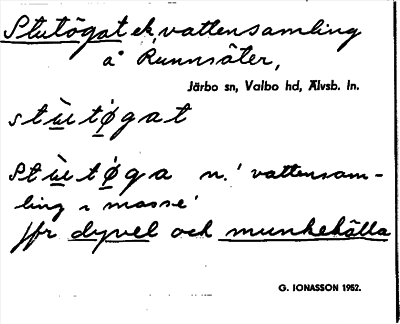 Stutögat ek, vattensamling
å Runnsäter,
Järbo sn, Valbo hd, Älvsb. ln.
stùtǿgat
Stùtǿga n. 'vattensam-
ling i mosse'
jfr dyvel och munkehålla
G. IONASSON 1952.